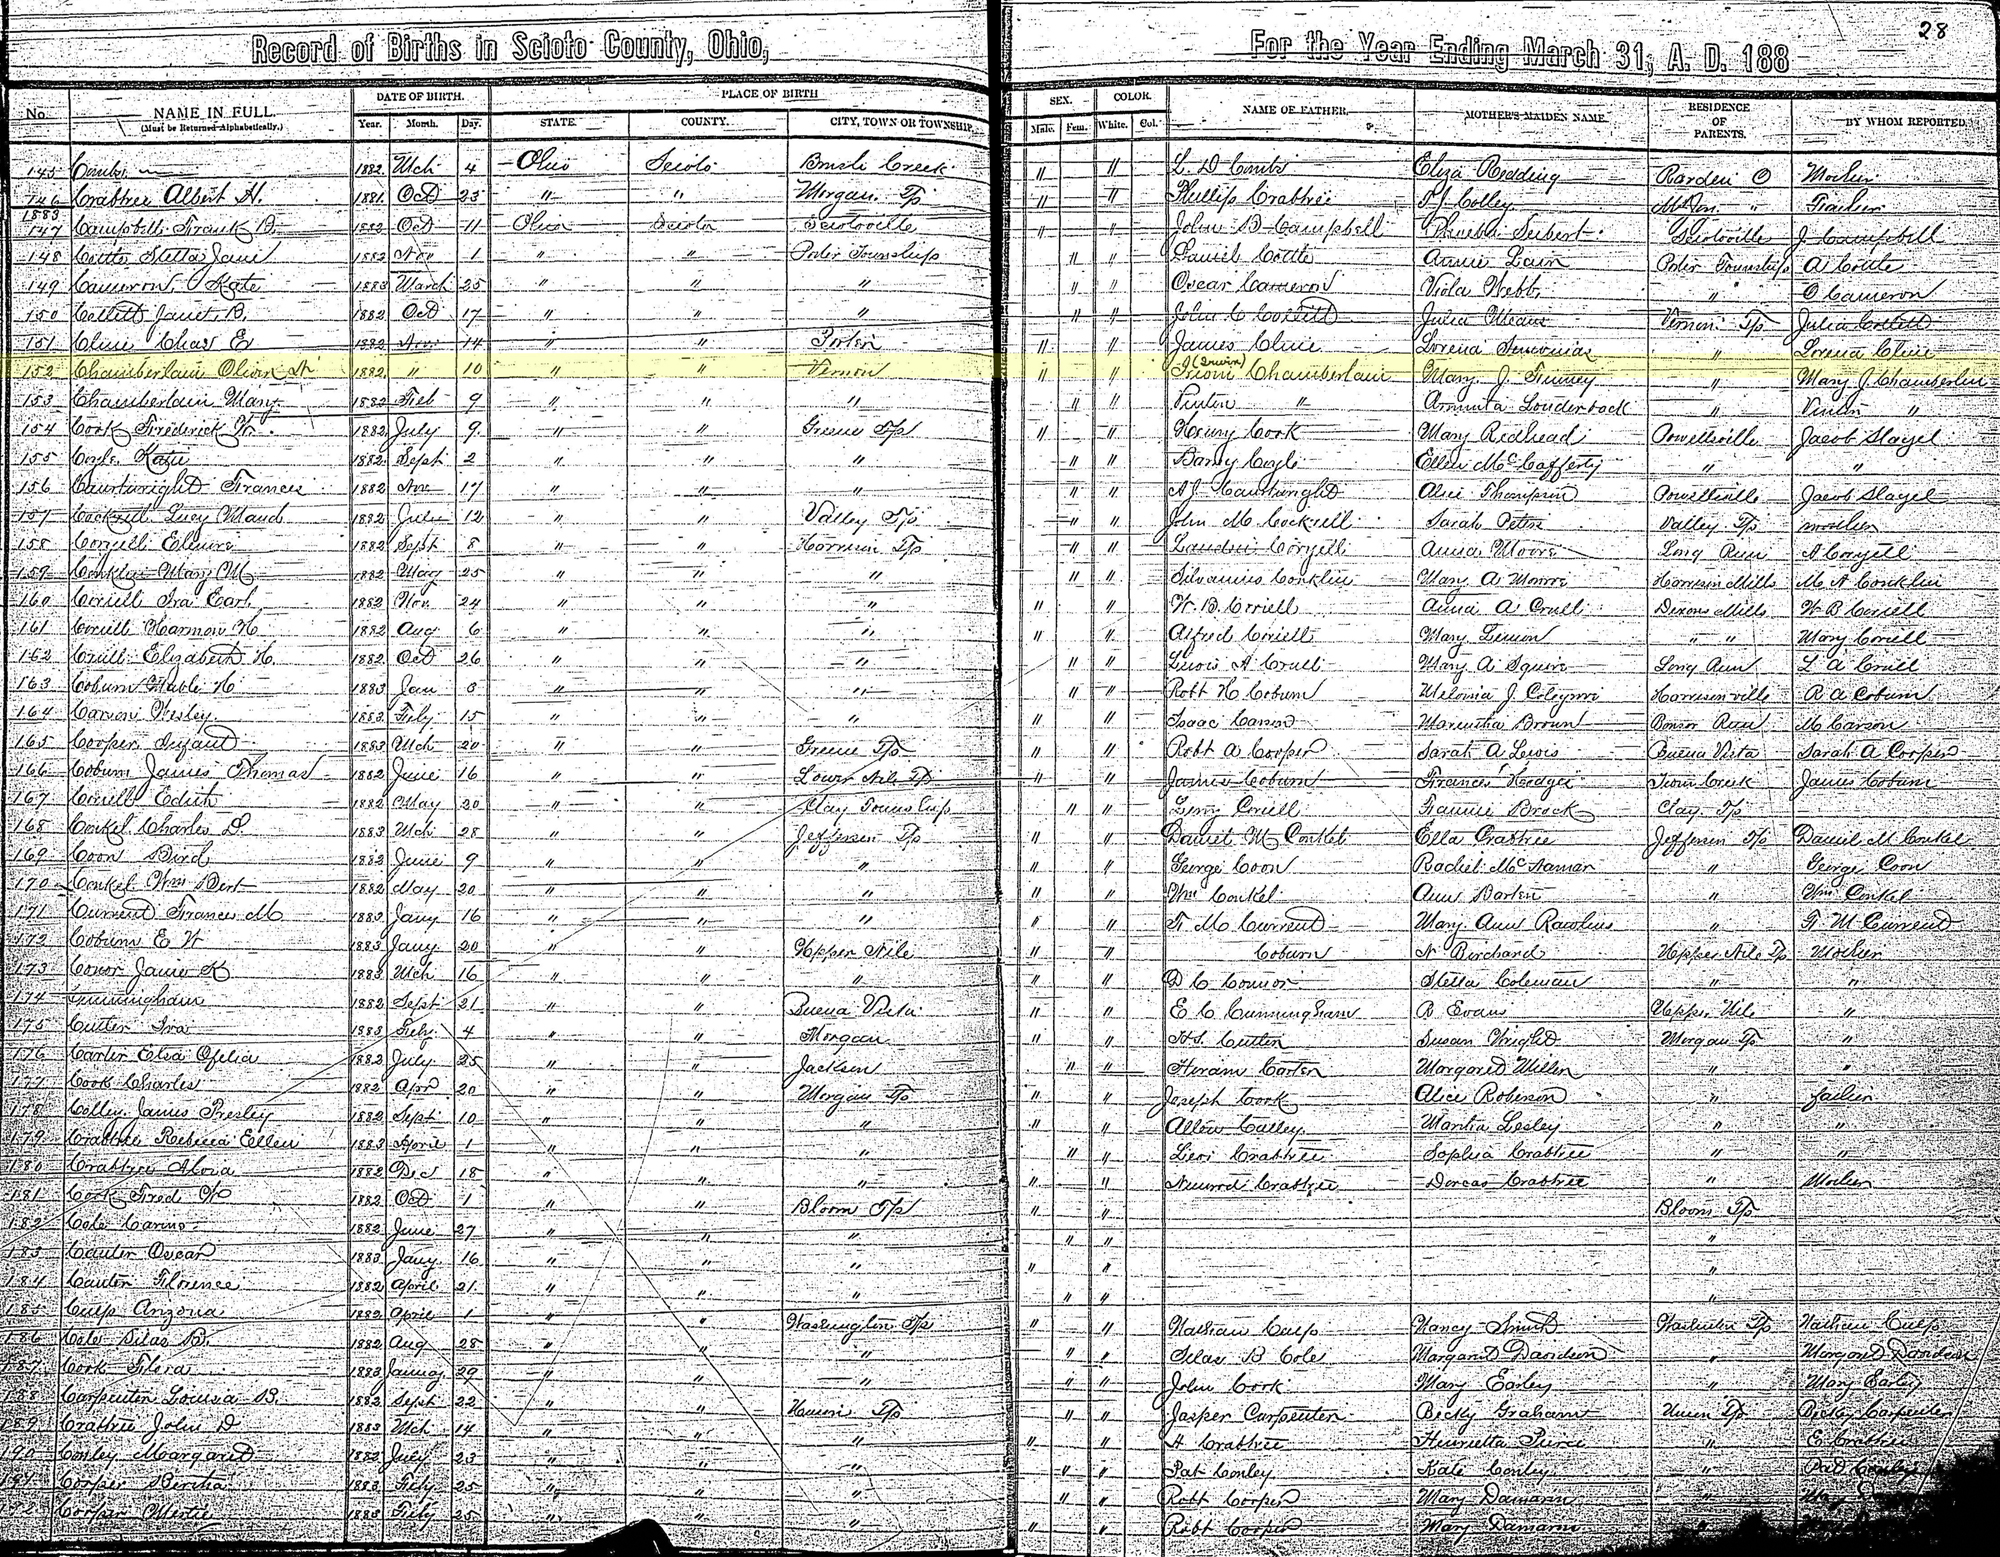 28
Record of Births in Scioto County, Ohio, For the Year Ending March 31, A. D. 188
No. NAME IN FULL. (Must be Returned Alphabetically.) DATE OF BIRTH. Year. Month. Day. PLACE OF BIRTH STATE. COUNTY. CITY, TOWN OR TOWNSHIP. SEX. Male. Fem. COLOR. White. Col. NAME OF FATHER. MOTHER'S MAIDEN NAME. RESIDENCE OF PARENTS. BY WHOM REPORTED.
145 Combs 1882 Mch 4 Ohio Scioto Brush Creek " " L. D Combs Eliza Redding Rarden O Mother
146 Crabtree Albert H. 1881 Oct 23 " " Morgan Tp " " Phillip Crabtree P J Colley "
1883
147 Campbell Frank B. 1882 Oct 11 Ohio Scioto Sciotoville " " John B Campbell Phoeba Seibert Sciotoville J Campbell
148 Cottle Stella Jane 1882 Nov 1 " " Porter Township " " Daniel Cottle Annie Lain Porter Township A Cottle
149 Cameron Kate 1883 March 25 " " " " " Oscar Cameron Viola Webb " O Cameron
150 Collett Janet B. 1882 Oct 17 " " " " " John C Collett Julia Means Vernon Tp Julia Collett
151 Cline Chas E 1882 Nov 14 " " Porter " " James Cline Lorena " Lorena Cline
152 Chamberlain Oliver 1882 " 10 " " Vernon " " (Irwin) Chamberlain Mary J Finney " Mary J. Chamberlin
153 Chamberlain Mary 1882 Feb 9 " " " " " Vinton " Arminta Louderback " Vinton "
154 Cook Frederick W. 1882 July 9 " " Greene Tp " " Henry Cook Mary Redhead Powellsville Jacob Slagel
155 Coyle Katie 1882 Sept 2 " " " " " Barny Coyle Ellen McCafferty " "
156 Cartwright Frances 1882 Nov 17 " " " " " A J Cartwright Alice Thompson Powellsville Jacob Slagel
157 Cockrell Lucy Maud 1882 July 12 " " Valley Tp " " John M Cockrell Sarah Peters Valley Tp mother
158 Coryell 1882 Sept 8 " " Harrison Tp " " Coryell Anna Moore Long Run A Coryell
159 Conklin Mary M 1882 May 25 " " " " " Silvanus Conklin Mary A Monroe Harrison Mills M A Conklin
160 Coriell Ira Earl 1882 Nov. 24 " " " " " W. B. Coriell Anna A Crull Dixons Mills W B Coriell
161 Coriell Harmon H 1882 Aug 6 " " " " " Alfred Coriell Mary " " Mary Coriell
162 Crull Elizabeth H. 1882 Oct 26 " " " " " Lewis A Crull Mary A Squire Long Run L A Crull
163 Coburn Mable H 1883 Jan 3 " " " " " Robt H Coburn J. Harrisonville R A Coburn
164 Carson Wesley 1883 Feby 15 " " " " " Isaac Carson Brown Run M Carson
165 Cooper Infant 1883 Mch 20 " " Greene Tp " " Robt A Cooper Sarah A Lewis Buena Vista Sarah A Cooper
166 Coburn James Thomas 1882 June 16 " " Lower Nile Tp " " James Coburn Frances Hodge Creek James Coburn
167 Coriell Edith 1882 May 20 " " Clay Township " " Coriell Fannie Brock Clay Tp
168 Conkel Charles D. 1883 Mch 28 " " Jefferson Tp " " Daniel M Conkel Ella Crabtree Jefferson Tp Daniel M Conkel
169 Coon Bird 1882 June 9 " " " " " George Coon Rachel McNamar " George Coon
170 Conkel Wm Bert 1882 May 20 " " " " " Wm Conkel Ann Barton " Wm Conkel
171 Current Frances M 1883 Jany 16 " " " " " F M Current Mary Ann Rawlins " F M Current
172 Coburn E W 1883 Jany 20 " " Upper Nile " " Coburn N Burchard Upper Nile Tp Mother
173 Conor Janie K 1883 Mch 16 " " " " " D C Connor Stella Coleman " "
174 Cunningham 1882 Sept 21 " " Buena Vista " " E C Cunningham B Evans Upper Nile "
175 Cutler Ira 1883 Feby 4 " " Morgan " " Cutler Susan Wright Morgan Tp "
176 Carter Etsa Ofelia 1882 July 25 " " Jackson " " Hiram Carter Margaret Miller "
177 Cook Charles 1882 Apr 20 " " Morgan Tp " " Joseph Cook Alice Roberson " father
178 Colley James Presley 1882 Sept 10 " " " " " Colley Martha Lesley " "
179 Crabtree Rebecca Ellen 1883 April 1 " " " " " Levi Crabtree Sophia Crabtree " "
180 Crabtree 1882 Dec 18 " " " " " Crabtree Dorcas Crabtree " Mother
181 Cook Fred W 1882 Oct 1 " " Bloom Tp " " Bloom Tp
182 Cole 1882 June 27 " " " " " "
183 Cauter Oscar 1883 Jany 16 " " " " " "
184 Cauter Florence 1882 April 21 " " " " " "
185 Culp Arizona 1882 April 1 " " Washington Tp " " Nathan Culp Nancy Smith Tp Nathan Culp
186 Cole Silas B. 1882 Aug 28 " " " " " Silas B Cole Margaret Davidson " Margaret Davidson
187 Cook Flora 1883 29 " " " " " John Cook Mary Earley " Mary Earley
188 Carpenter Louisa B. 1882 Sept 22 " " Union Tp " " Jasper Carpenter Becky Graham Union Tp Becky Carpenter
189 Crabtree John D 1883 Mch 14 " " " " " H Crabtree Henrietta Pierce " E Crabtree
190 Conley Margaret 1882 July 23 " " " " " Pat Conley Kate Conley " Pat Conley
191 Cooper Bertha 1883 Feby 25 " " " " " Robt Cooper Mary Damarin "
192 Cooper Mertie 1883 Feby 25 " " " " Robt Cooper Mary Damarin "